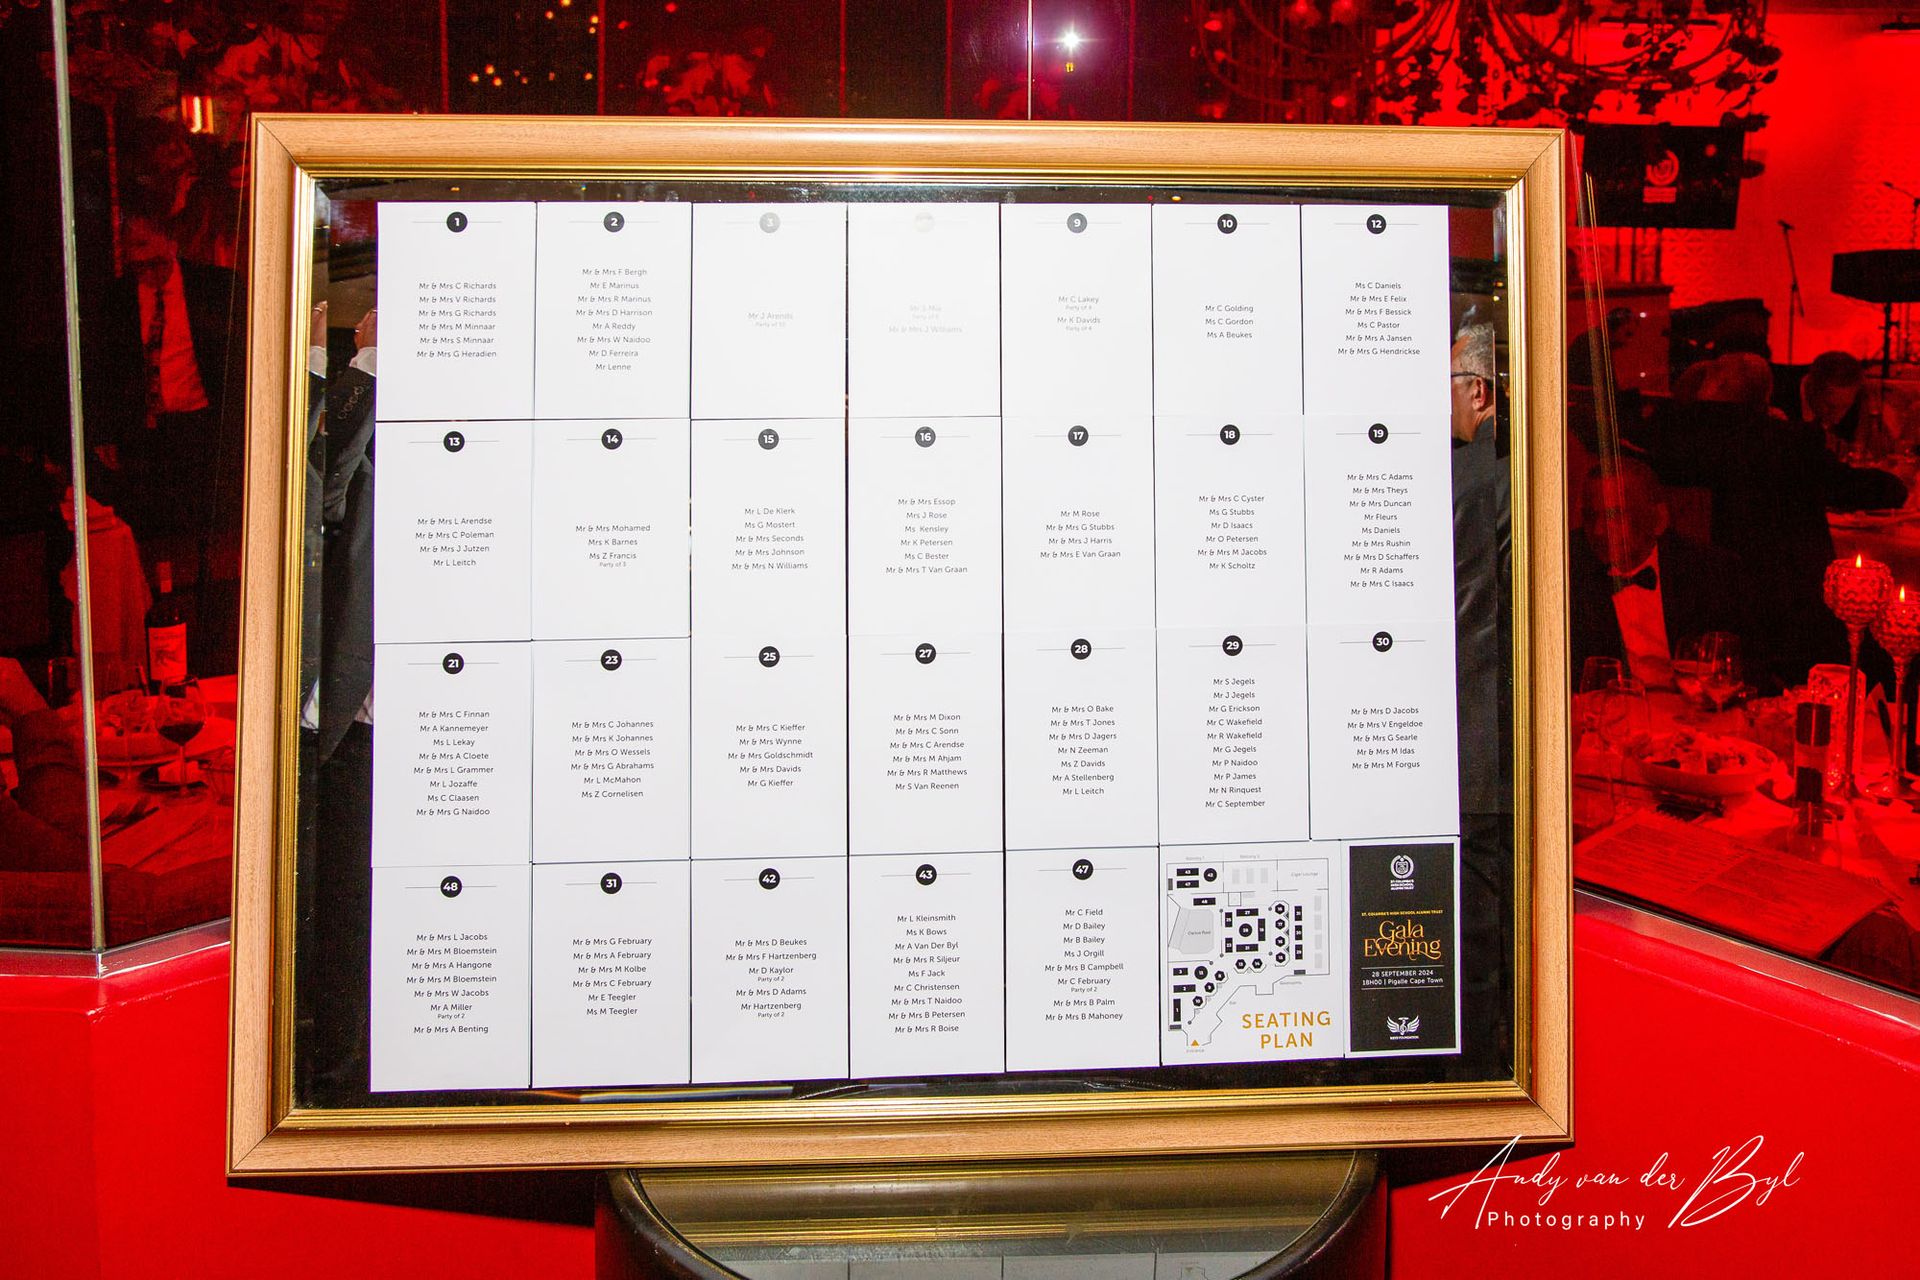 1
Mr & Mrs C Richards
Mr & Mrs V Richards
Mr & Mrs G Richards
Mr & Mrs M Minnaar
Mr & Mrs S Minnaar
Mr & Mrs G Heradien
2
Mr & Mrs F Bergh
Mr E Marinus
Mr & Mrs R Marinus
Mr & Mrs D Harrison
Mr A Reddy
Mr & Mrs W Naidoo
Mr D Ferreira
Mr Lenne
3
Mr J Arends
Party of 10
Mr & Mrs J Williams
9
Mr C Lakey
Party of 4
Mr K Davids
Party of 4
10
Mr C Golding
Ms C Gordon
Ms A Beukes
12
Ms C Daniels
Mr & Mrs E Felix
Mr & Mrs F Bessick
Ms C Pastor
Mr & Mrs A Jansen
Mr & Mrs G Hendrickse
13
Mr & Mrs L Arendse
Mr & Mrs C Poleman
Mr & Mrs J Jutzen
Mr L Leitch
14
Mr & Mrs Mohamed
Mrs K Barnes
Ms Z Francis
Party of 3
15
Mr L De Klerk
Ms G Mostert
Mr & Mrs Seconds
Mr & Mrs Johnson
Mr & Mrs N Williams
16
Mr & Mrs Essop
Mrs J Rose
Ms Kensley
Mr K Petersen
Ms C Bester
Mr & Mrs T Van Graan
17
Mr M Rose
Mr & Mrs G Stubbs
Mr & Mrs J Harris
Mr & Mrs E Van Graan
18
Mr & Mrs C Cyster
Ms G Stubbs
Mr D Isaacs
Mr O Petersen
Mr & Mrs M Jacobs
Mr K Scholtz
19
Mr & Mrs C Adams
Mr & Mrs Theys
Mr & Mrs Duncan
Mr Fleurs
Ms Daniels
Mr & Mrs Rushin
Mr & Mrs D Schaffers
Mr R Adams
Mr & Mrs C Isaacs
21
Mr & Mrs C Finnan
Mr A Kannemeyer
Ms L Lekay
Mr & Mrs A Cloete
Mr & Mrs L Grammer
Mr L Jozaffe
Ms C Claasen
Mr & Mrs G Naidoo
23
Mr & Mrs C Johannes
Mr & Mrs K Johannes
Mr & Mrs O Wessels
Mr & Mrs G Abrahams
Mr L McMahon
Ms Z Cornelisen
25
Mr & Mrs C Kieffer
Mr & Mrs Wynne
Mr & Mrs Goldschmidt
Mr & Mrs Davids
Mr G Kieffer
27
Mr & Mrs M Dixon
Mr & Mrs C Sonn
Mr & Mrs C Arendse
Mr & Mrs M Ahjam
Mr & Mrs R Matthews
Mr S Van Reenen
28
Mr & Mrs O Bake
Mr & Mrs T Jones
Mr & Mrs D Jagers
Mr N Zeeman
Ms Z Davids
Mr A Stellenberg
Mr L Leitch
29
Mr S Jegels
Mr J Jegels
Mr G Erickson
Mr C Wakefield
Mr R Wakefield
Mr G Jegels
Mr P Naidoo
Mr P James
Mr N Rinquest
Mr C September
30
Mr & Mrs D Jacobs
Mr & Mrs V Engeldoe
Mr & Mrs G Searle
Mr & Mrs M Idas
Mr & Mrs M Forgus
48
Mr & Mrs L Jacobs
Mr & Mrs M Bloemstein
Mr & Mrs A Hangone
Mr & Mrs M Bloemstein
Mr & Mrs W Jacobs
Mr A Miller
Party of 2
Mr & Mrs A Benting
31
Mr & Mrs G February
Mr & Mrs A February
Mr & Mrs M Kolbe
Mr & Mrs C February
Mr E Teegler
Ms M Teegler
42
Mr & Mrs D Beukes
Mr & Mrs F Hartzenberg
Mr D Kaylor
Party of 2
Mr & Mrs D Adams
Mr Hartzenberg
Party of 2
43
Mr L Kleinsmith
Ms K Bows
Mr A Van Der Byl
Mr & Mrs R Siljeur
Ms F Jack
Mr C Christensen
Mr & Mrs T Naidoo
Mr & Mrs B Petersen
Mr & Mrs R Boise
47
Mr C Field
Mr D Bailey
Mr B Bailey
Ms J Orgill
Mr & Mrs B Campbell
Mr C February
Party of 2
Mr & Mrs B Palm
Mr & Mrs B Mahoney
Balcony 1
Balcony 2
Cigar Lounge
Dance Floor
Bar
Entrance
SEATING
PLAN
ST. COLUMBA'S
HIGH SCHOOL
ALUMNI TRUST
ST. COLUMBA'S HIGH SCHOOL ALUMNI TRUST
Gala
Evening
28 SEPTEMBER 2024
18H00 | Pigalle Cape Town
Andy van der Byl
Photography